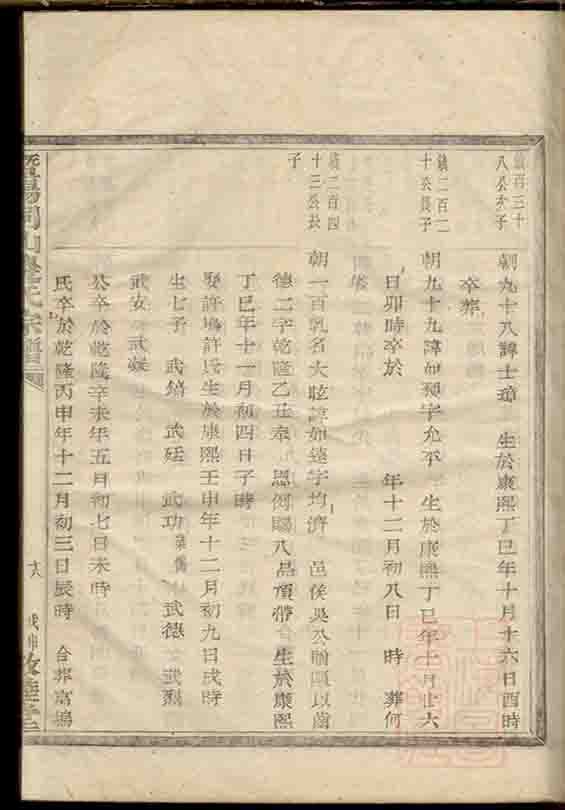 鎮百三十
八公次子
朝九十八諱士璋 生於康熙丁巳年十月十六日酉時
卒葬
鎮二百二
十公長子
朝九十九諱如預字允平 生於康熙丁巳年十月廿六
日卯時卒於 年十二月初八日 時 葬何
鎮二百四
十三公長
子
朝一百乳名大眩諱如遠字均濟 邑侯吳公贈匾以齒
德二字乾隆乙丑奉 恩例賜八品頂帶 生於康熙
丁巳年十一月初四日子時
娶許塢許氏生於康熙壬申年十二月初九日戌時
生七子 武 武廷 武功 武德 武烈
武安 武
公卒於乾隆辛未年五月初七日未時
氏卒於乾隆丙申年十二月初三日辰時 合葬富塢
暨陽同山 氏宗譜
睦堂